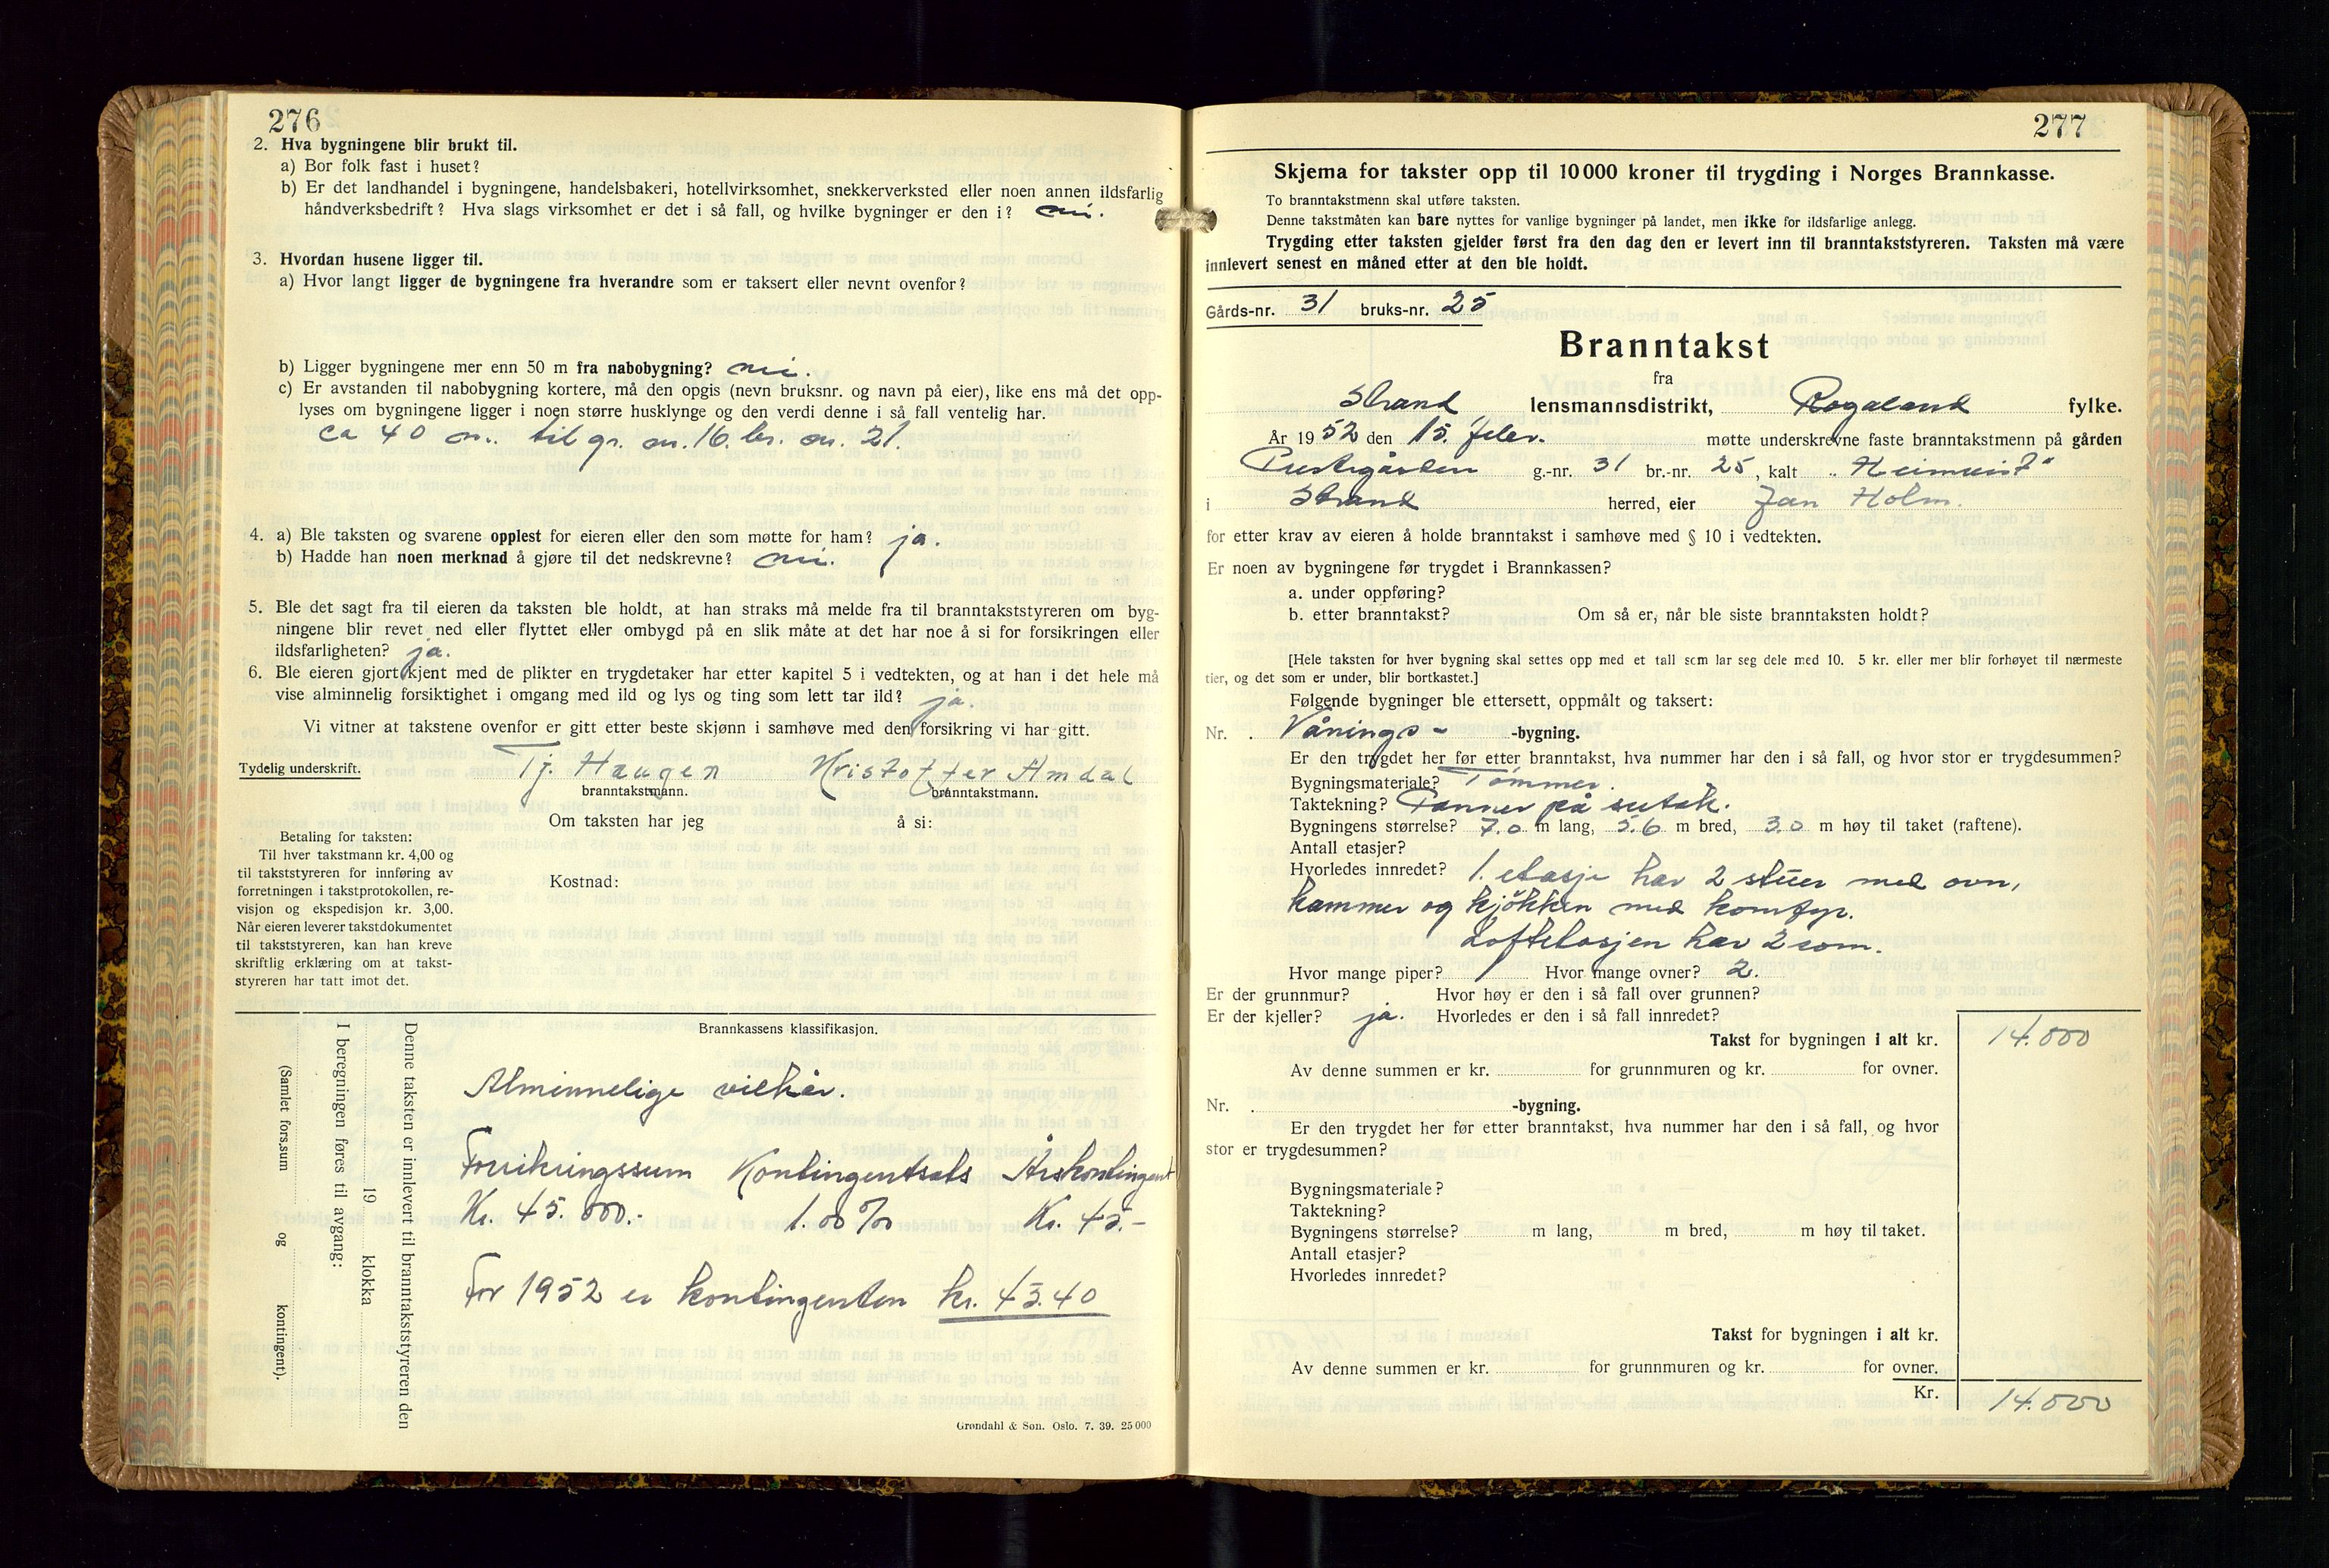 276
2. Hva bygningene blir brukt til.
a) Bor folk fast i huset?
b) Er det landhandel i bygningene, handelsbakeri, hotellvirksomhet, snekkerverksted eller noen annen ildsfarlig
håndverksbedrift? Hva slags virksomhet er det i så fall, og hvilke bygninger er den i? nei.
3. Hvordan husene ligger til.
a) Hvor langt ligger de bygningene fra hverandre som er taksert eller nevnt ovenfor?
b) Ligger bygningene mer enn 50 m fra nabobygning? nei.
c) Er avstanden til nabobygning kortere, må den opgis (nevn bruksnr. og navn på eier), like ens må det opp-
lyses om bygningene ligger i noen større husklynge og den verdi denne i så fall ventelig har.
ca 40 m. til gr. nr. 16 br. nr. 21
4. a) Ble taksten og svarene opplest for eieren eller den som møtte for ham? ja.
b) Hadde han noen merknad å gjøre til det nedskrevne? nei.
5. Ble det sagt fra til eieren da taksten ble holdt, at han straks må melde fra til branntakststyreren om byg-
ningene blir revet ned eller flyttet eller ombygd på en slik måte at det har noe å si for forsikringen eller
ildsfarligheten? ja.
6. Ble eieren gjort kjent med de plikter en trygdetaker har etter kapitel 5 i vedtekten, og at han i det hele må
vise alminnelig forsiktighet i omgang med ild og lys og ting som lett tar ild? ja.
Vi vitner at takstene ovenfor er gitt etter beste skjønn i samhøve med den forsikring vi har gitt.
Tydelig underskrift. Tj. Haugen Kristoffer Amdal
branntakstmann. branntakstmann.
Om taksten har jeg å si:
Betaling for taksten:
Til hver takstmann kr. 4,00 og
til takststyreren for innføring av
forretningen i takstprotokollen, re-
visjon og ekspedisjon kr. 3,00.
Når eieren leverer takstdokumentet
til takststyreren, kan han kreve
skriftlig erklæring om at takst-
styreren har tatt imot det.
Kostnad:
Denne taksten er innlevert til branntakststyreren den
19 klokka
I beregningen føres til avgang:
(Samlet fors.sum og kontingent).
Brannkassens klassifikasjon.
Alminnelige vilkår.
Forsikringssum Kontingentsats Årskontingent
Kr. 45.000.- 1.00 ‰ Kr. 45.-
For 1952 er kontingenten kr. 43.40
Grøndahl & Søn. Oslo. 7. 39. 25 000
277
Skjema for takster opp til 10 000 kroner til trygding i Norges Brannkasse.
To branntakstmenn skal utføre taksten.
Denne takstmåten kan bare nyttes for vanlige bygninger på landet, men ikke for ildsfarlige anlegg.
Trygding etter taksten gjelder først fra den dag den er levert inn til branntakststyreren. Taksten må være
innlevert senest en måned etter at den ble holdt.
Gårds-nr. 31 bruks-nr. 25
Branntakst
fra
Strand lensmannsdistrikt, Rogaland fylke.
År 1952 den 15. febr. møtte underskrevne faste branntakstmenn på gården
Prestegården g.-nr. 31 br.-nr. 25, kalt "Heimvist"
i Strand herred, eier Jan Holm.
for etter krav av eieren å holde branntakst i samhøve med § 10 i vedtekten.
Er noen av bygningene før trygdet i Brannkassen?
a. under oppføring?
b. etter branntakst? Om så er, når ble siste branntaksten holdt?
[Hele taksten for hver bygning skal settes opp med et tall som lar seg dele med 10. 5 kr. eller mer blir forhøyet til nærmeste
tier, og det som er under, blir bortkastet.]
Følgende bygninger ble ettersett, oppmålt og taksert:
Nr. Vånings- -bygning.
Er den trygdet her før etter branntakst, hva nummer har den i så fall, og hvor stor er trygdesummen?
Bygningsmateriale? Tømmer.
Taktekning? Panner på sutak.
Bygningens størrelse? 7.0 m lang, 5.6 m bred, 3.0 m høy til taket (raftene).
Antall etasjer?
Hvorledes innredet? 1. etasje har 2 stuer med ovn,
kammer og kjøkken med komfyr.
Loftetasjen har 2 rom.
Hvor mange piper? 1 Hvor mange ovner? 2.
Er der grunnmur? Hvor høy er den i så fall over grunnen?
Er der kjeller? ja. Hvorledes er den i så fall innredet?
Takst for bygningen i alt kr. 14.000
Av denne summen er kr. for grunnmuren og kr. for ovner.
Nr. -bygning.
Er den trygdet her før etter branntakst, hva nummer har den i så fall, og hvor
stor er trygdesummen?
Bygningsmateriale?
Taktekning?
Bygningens størrelse? m lang, m bred, m høy til taket.
Antall etasjer?
Hvorledes innredet?
Takst for bygningen i alt kr.
Av denne summen er kr. for grunnmuren og kr. for ovner.
Kr. 14.000